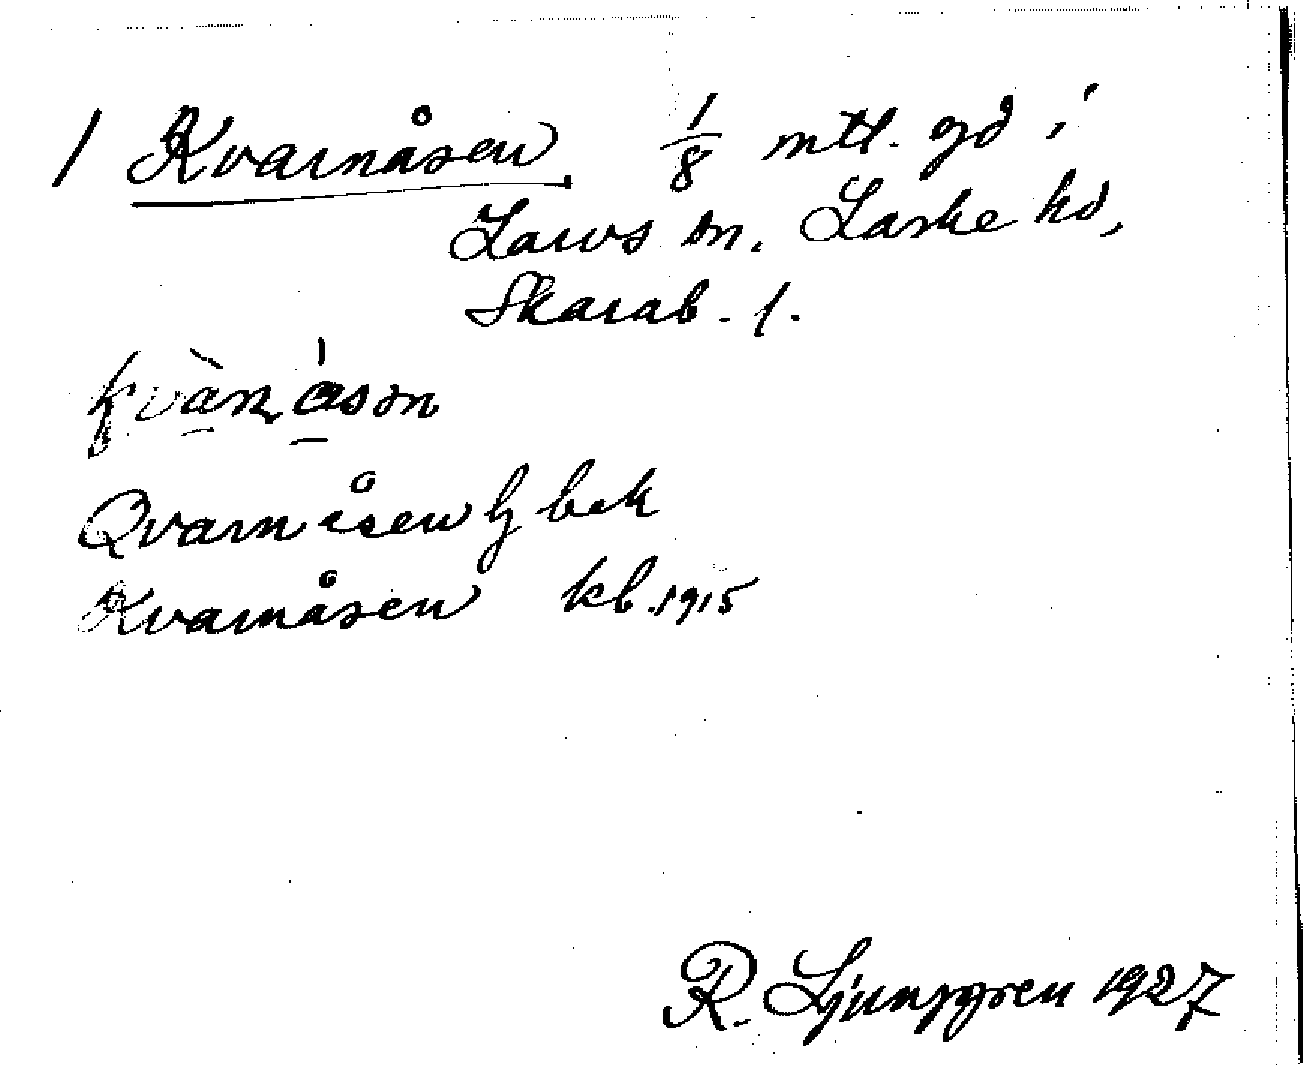 1 Kvarnåsen 1/8 mtl. gd i
Larvs sn. Laske hd,
Skarab. l.
kvàn åsən
Qvarnåsen bek
Kvarnåsen kb. 1915
R. Ljunggren 1927